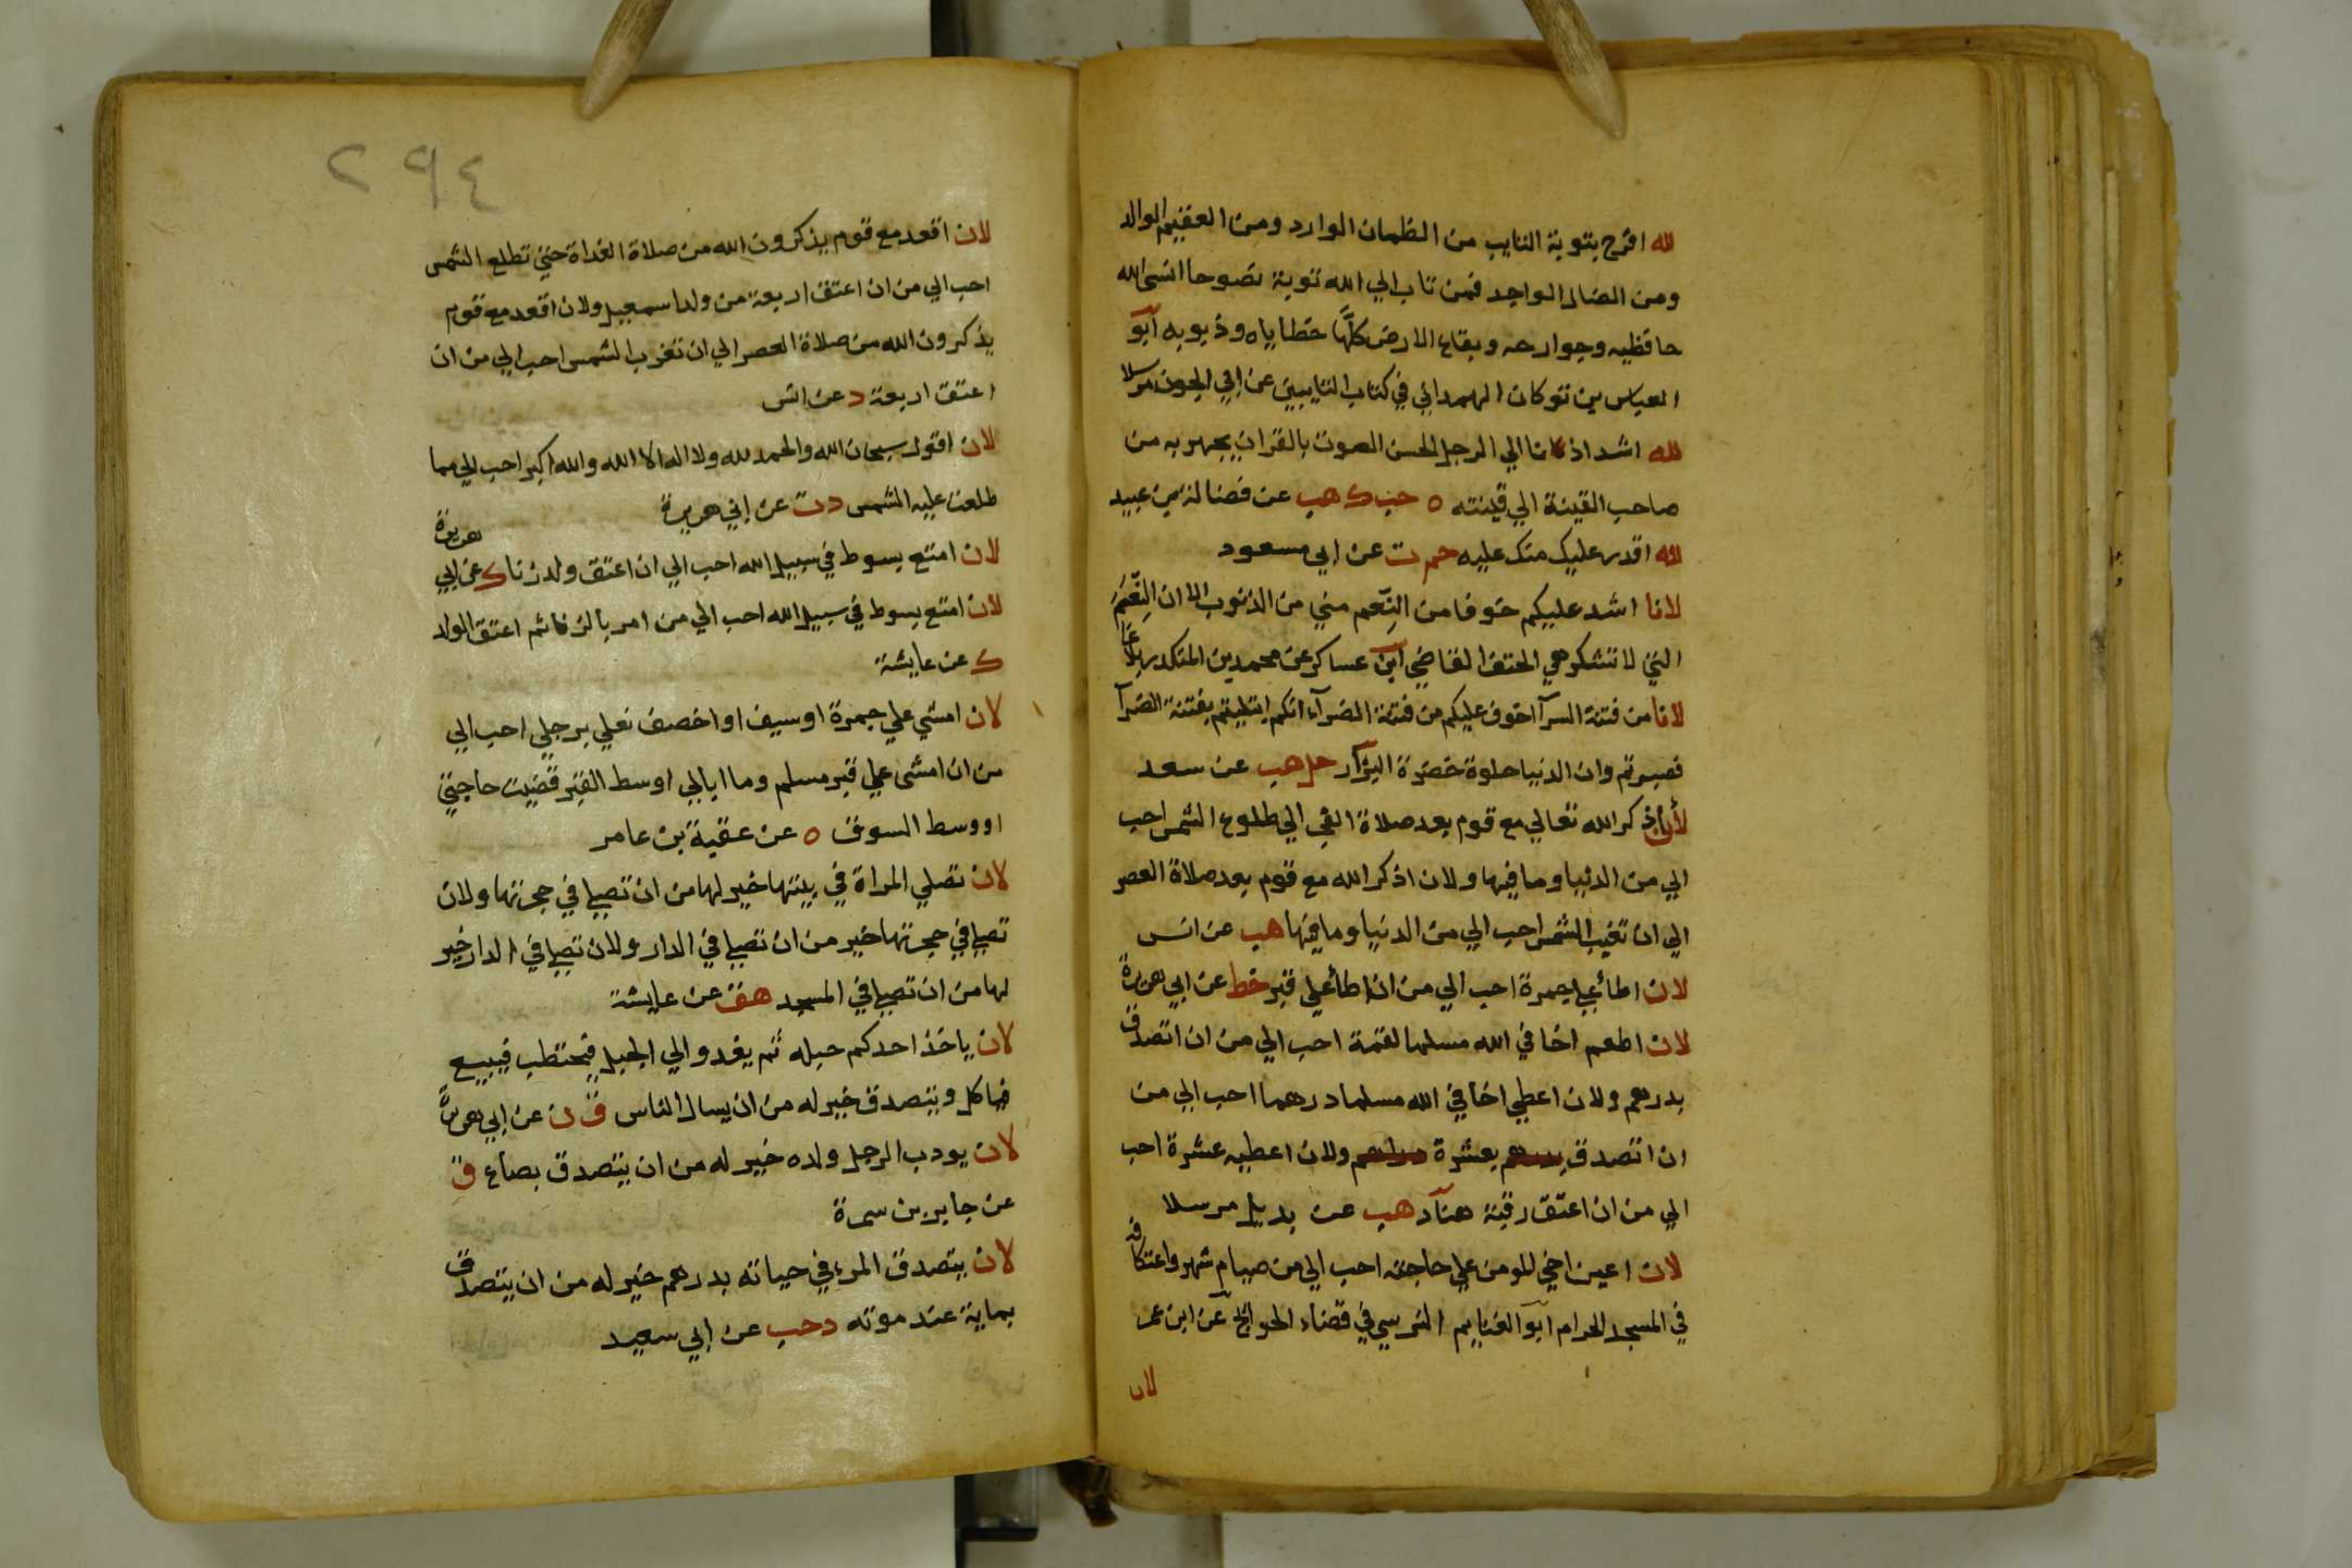 لله افرح بتوبة التايب من الظمان الوارد ومن العقيم الوالد
ومن الضال الواجد فمن تاب الي الله توبة نصوحا انسى الله
حافظيه وجوارحه وبقاع الارض كلها خطاياه وذبوبه ابو
العباس بن تركان الهمداني في كتاب التايبين عن ابي الجون مرسلا
لله اشد اذنا الي الرجل الحسن الصوت بالقران يجهر به من
صاحب القينة الي قينته ه حب ك هب عن فضالة بن عبيد
لله اقدر عليك منك عليه حم ت عن ابي مسعود
لانا اشد عليكم خوفا من النعم مني من الذنوب الا ان النعم
التي لا تشكر هي الحتف القاضي ابن عساكر عن محمد بن المنكدر بلاغا
لانا من فتنة السرا اخوف عليكم من فتنة الضرآء انكم ابتليتم بفتنة الضرآ
فصبرتم وان الدنيا حلوة خضرة البزار حل هب عن سعد
لأن اذكر الله تعالي مع قوم بعد صلاة الفجر الي طلوع الشمس احب
الي من الدنيا وما فيها ولان اذكر الله مع قوم بعد صلاة العصر
الي ان تغيب الشمس احب الي من الدنيا وما فيها هب عن انس
لان اطأ علي جمرة احب الي من ان اطأ علي قبر خط عن ابي هريرة
لان اطعم اخا في الله مسلما لقمة احب الي من ان اتصدق
بدرهم ولان اعطي اخا في الله مسلما درهما احب الي من
ان اتصدق بعشرة ولان اعطيه عشرة احب
الي من ان اعتق رقبة هناد هب عن بديل مرسلا
لان اعين اخي المومن علي حاجته احب الي من صيام شهر واعتكافه
في المسجد الحرام ابو الغنايم النرسي في قضاء الحوائج عن ابن عمر
لان
٢٩٤
لان اقعد مع قوم يذكرون الله من صلاة الغداة حتي تطلع الشمس
احب الي من ان اعتق اربعة من ولد اسمعيل ولان اقعد مع قوم
يذكرون الله من صلاة العصر الي ان تغرب الشمس احب الي من ان
اعتق اربعة د عن انس
لان اقول سبحان الله والحمد لله ولا اله الا الله والله اكبر احب الي مما
طلعت عليه الشمس د ت عن ابي هريرة
لان امتع بسوط في سبيل الله احب الي ان اعتق ولد زنا ك عن ابي هريرة
لان امتع بسوط في سبيل الله احب الي من امر بالزنا ثم اعتق الولد
ك عن عايشة
لان امشي علي جمرة او سيف او اخصف نعلي برجلي احب الي
من ان امشى علي قبر مسلم وما ابالي اوسط القبر قضيت حاجتي
او وسط السوق ه عن عقبة بن عامر
لان تصلي المراة في بيتها خير لها من ان تصلي في حجرتها ولان
تصلي في حجرتها خير من ان تصلي في الدار ولان تصلي في الدار خير
لها من ان تصلي في المسجد هق عن عايشة
لان ياخذ احدكم حبله ثم يغدو الي الجبل فيحتطب فيبيع
فياكل ويتصدق خير له من ان يسال الناس ق ن عن ابي هريرة
لان يودب الرجل ولده خير له من ان يتصدق بصاع ق
عن جابر بن سمرة
لان يتصدق المرء في حياته بدرهم خير له من ان يتصدق
بماية عند موته د حب عن ابي سعيد